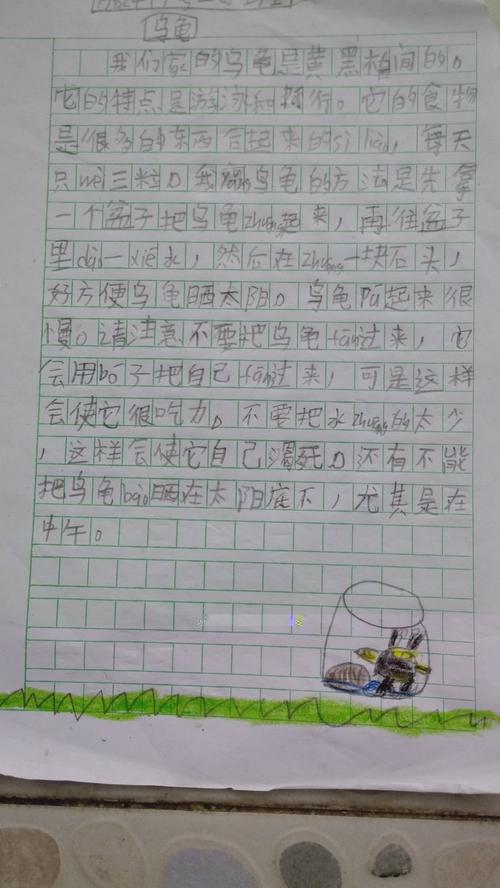 乌龟
我们家的乌龟是黄黑相间的。
它的特点是游泳和爬行。它的食物
是很多的东西合起来的sì liào,每天
只wèi三粒。我yǎng乌龟的方法是先拿
一个盆子把乌龟zhuāng起来,再往盆子
里dào一xiē水,然后在zhuāng一块石头,
好方便乌龟晒太阳。乌龟Pá起来很
慢。请注意不要把乌龟fān过来,它
会用bó子把自己fān过来,可是这样
会使它很吃力。不要把水zhuāng的太少
,这样会使它自己渴死。还有不能
把乌龟bào晒在太阳底下,尤其是在
中午。